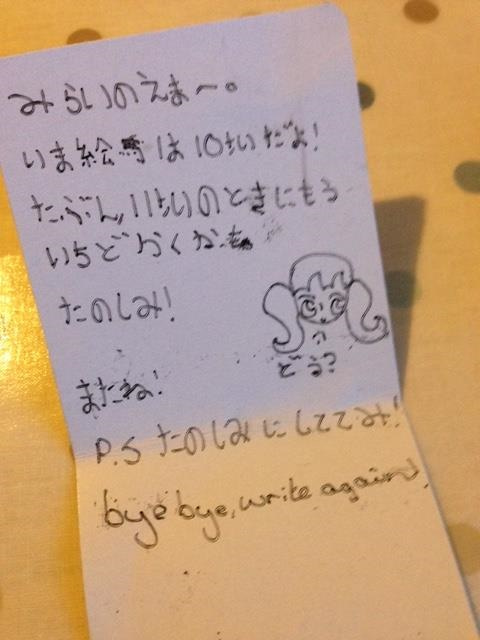 みらいのえま〜。
いま絵馬は10さいだよ!
たぶん,11さいのときにもう
いちどかくかも
たのしみ!
どう?
またね!
P.S たのしみにしててみ!
bye bye, write again!